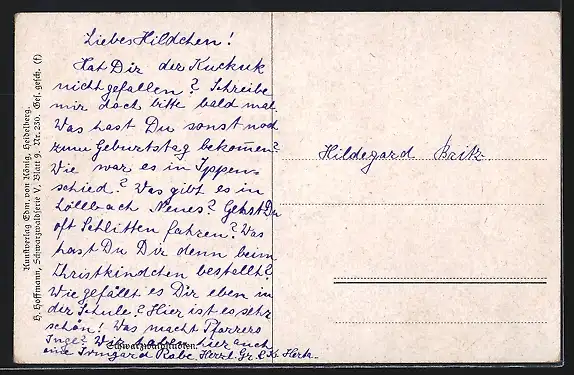 Liebes Hildchen!
Hat Dir der Kuckuk
nicht gefallen? Schreibe
mir doch bitte bald mal.
Was hast Du sonst noch
zum Geburtstag bekommen?
Wie war es in Ippen-
schied? Was gibt es in
Löllbach Neues? Gehst Du
oft Schlitten fahren? Was
hast Du Dir denn beim
Christkindchen bestellt?
Wie gefällt es Dir eben in
der Schule? Hier ist es sehr
schön! Was macht Pfarrers
Inge? Wir haben hier auch
eine Irmgard Rabe. Herzl. Gr. & K. Herta.
Hildegard Britz
Schwarzwaldfluten.
Kunstverlag Edm. von König, Heidelberg.
H. Hoffmann, Schwarzwaldserie V. Blatt 9. Nr. 230. Ges. gesch. (f)